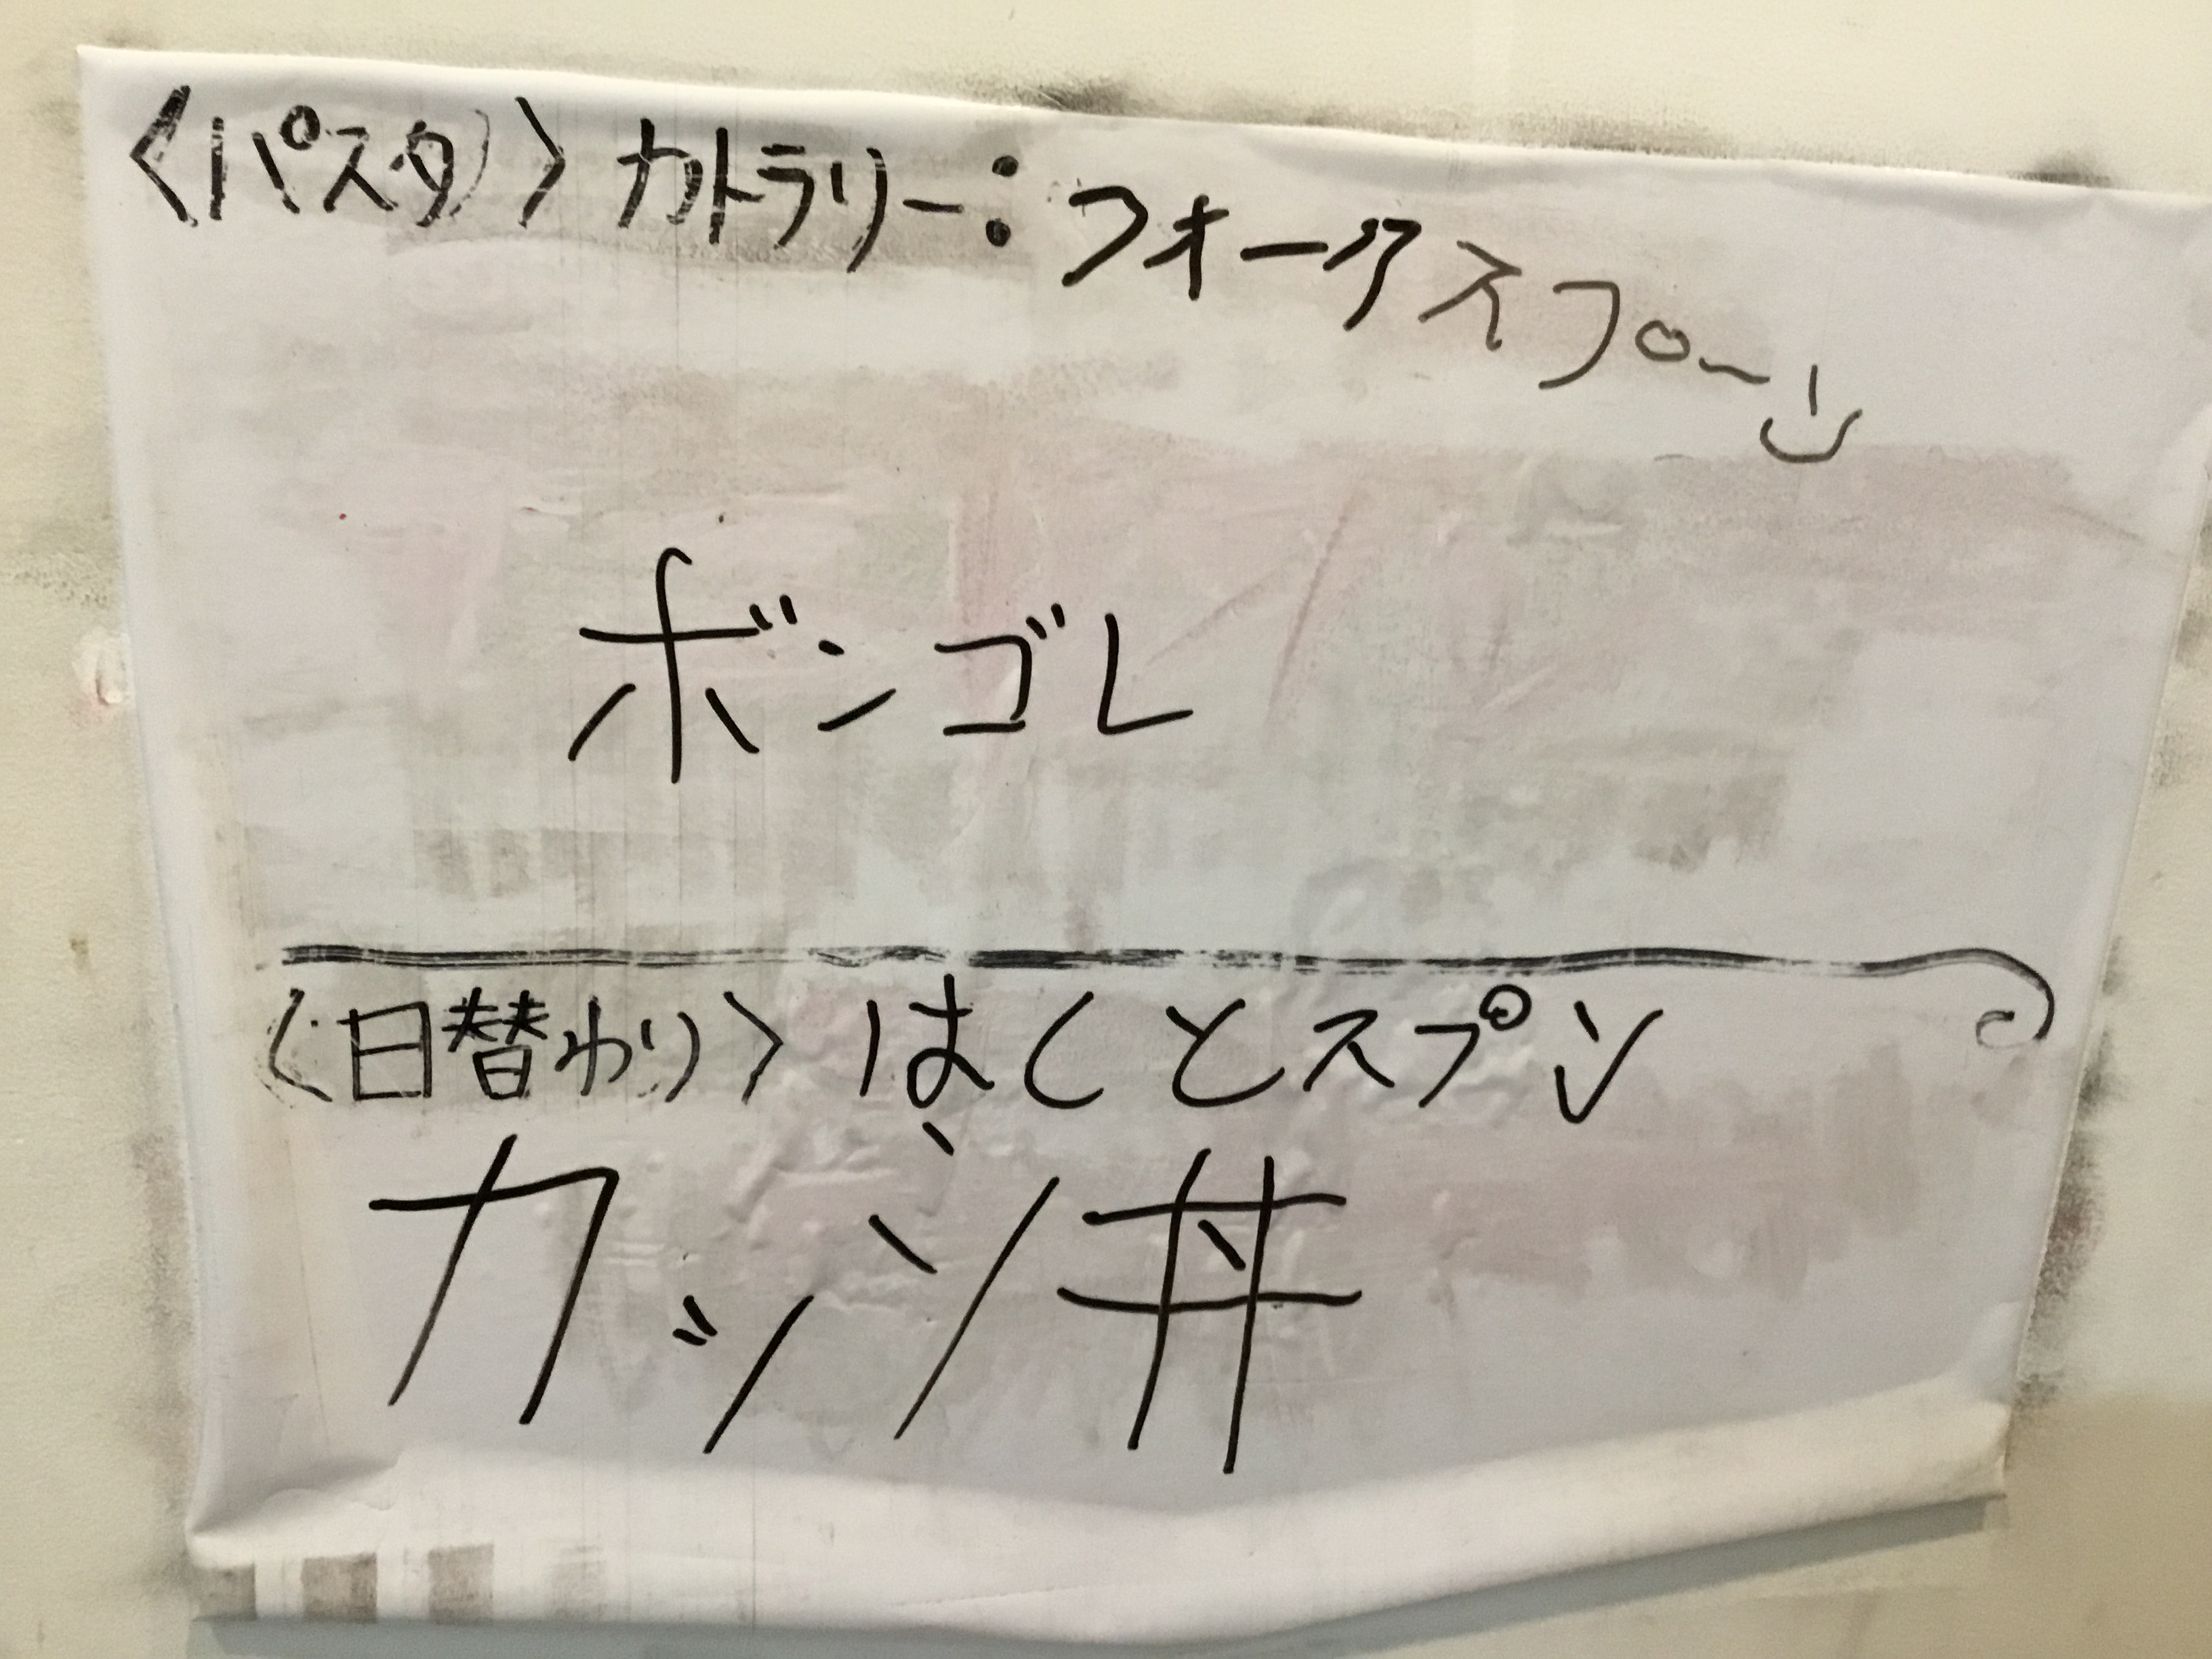 〈パスタ〉カトラリー:フォークスプーン
ボンゴレ
〈日替わり〉はしとスプン
カツ丼